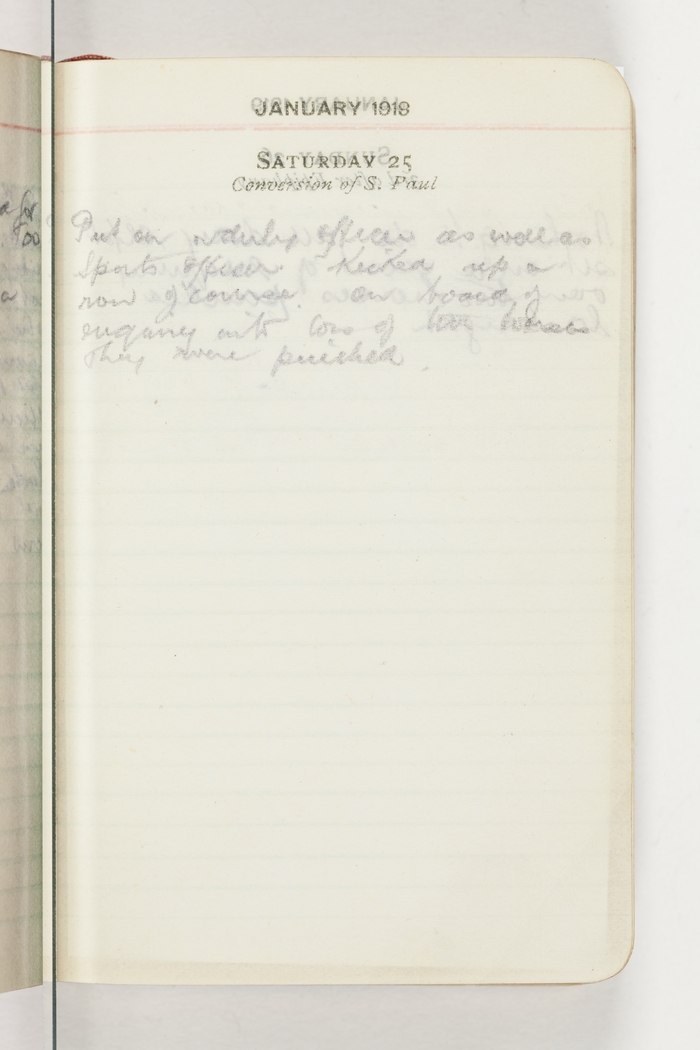 JANUARY 1919
SATURDAY 25
Conversion of S. Paul
Put on duty officer as well as
Sports officer. Kicked up a
row of course. On board of
enquiry into loss of horses
They were pinched.